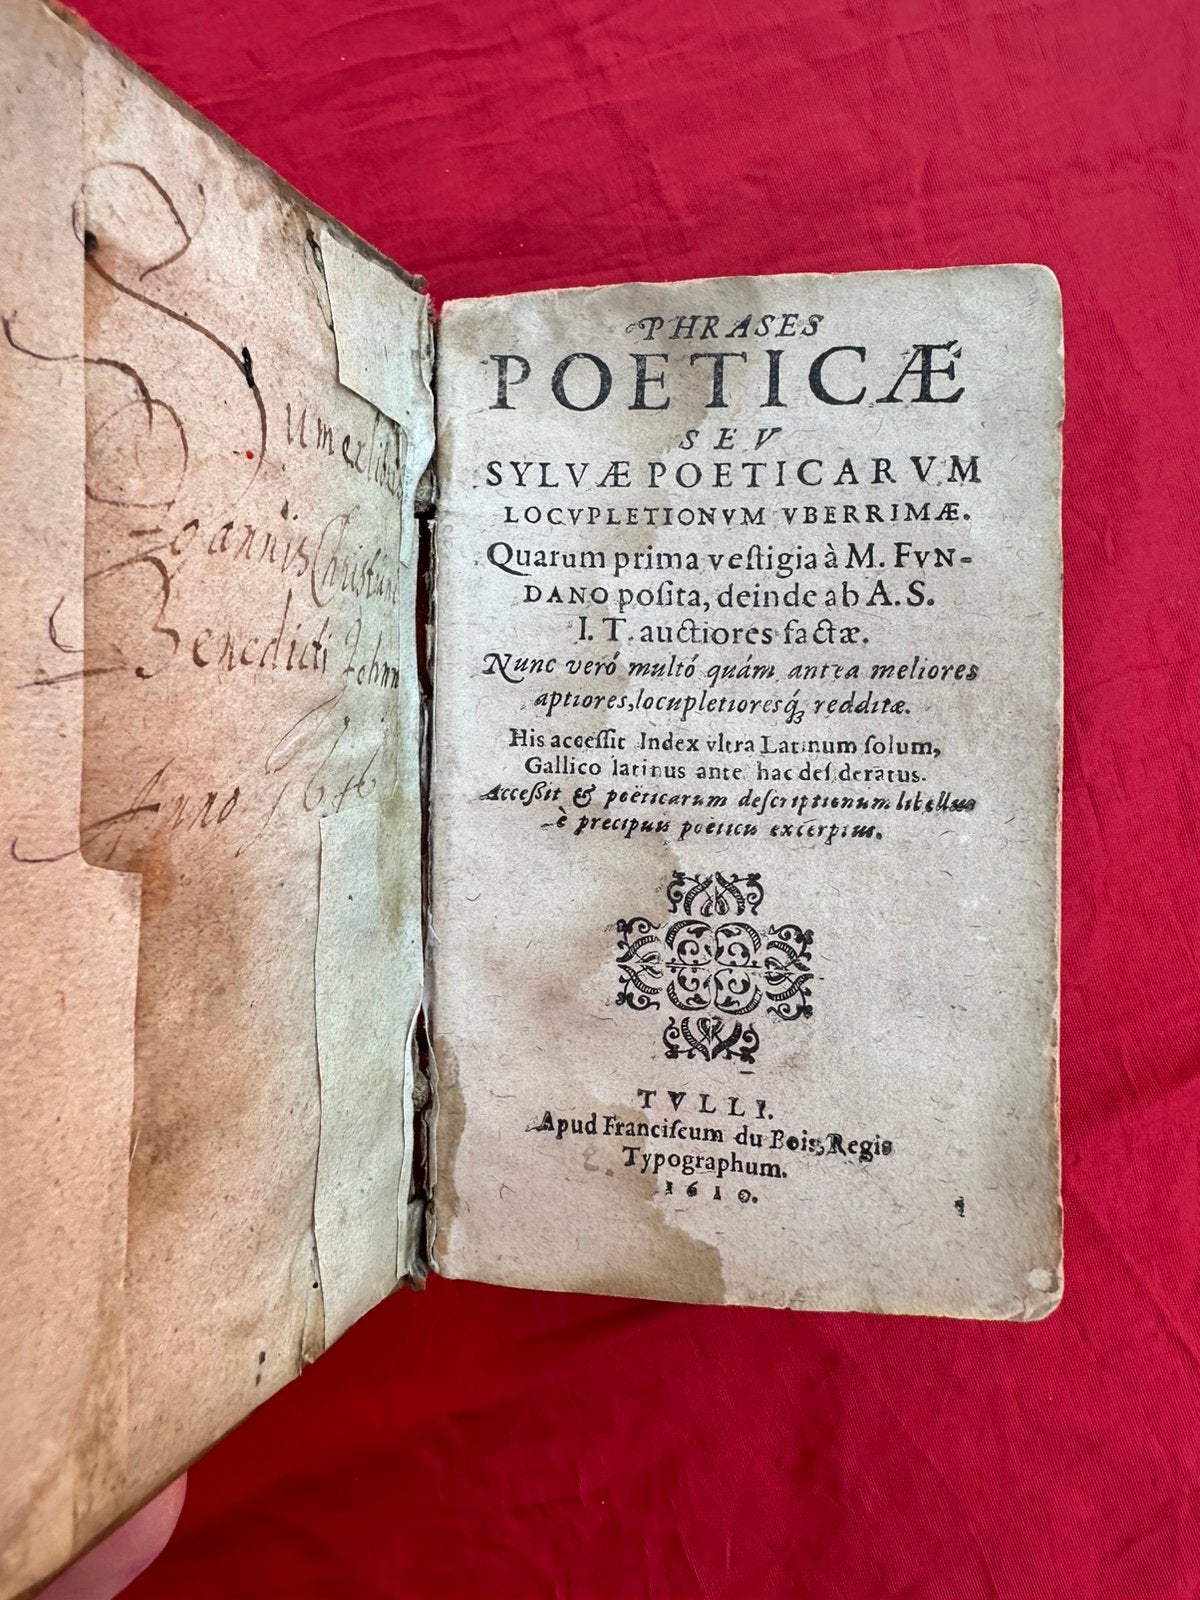 Sum ex libris
Joannis Christiani
Benedicti Johnn
Anno 1646
PHRASES
POETICÆ
SEV
SYLVÆ POETICARVM
LOCVPLETIONVM VBERRIMÆ.
Quarum prima veſtigia à M. FVN-
DANO poſita, deinde ab A. S.
I. T. auctiores factæ.
Nunc veró multó quám antea meliores
aptiores, locupletioresq́; redditæ.
His acceſſit Index vltra Latinum ſolum,
Gallico latinus ante hac deſideratus.
Acceßit & poëticarum deſcriptionum libellus
è precipuis poëticis excerptus.
TVLLI.
Apud Franciſcum du Bois, Regis
Typographum.
1610.